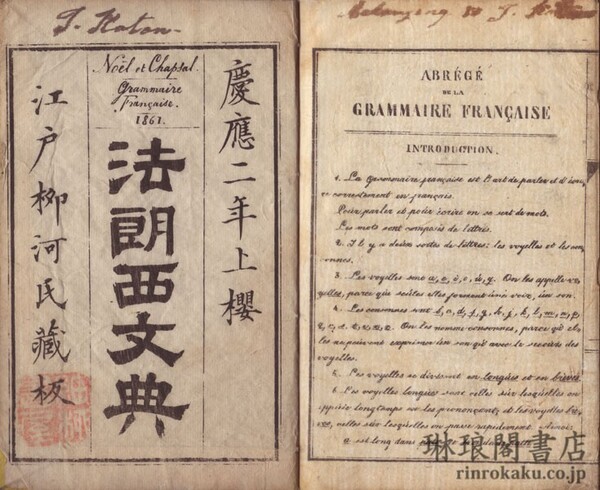 Katon.
Noël et Chapsal.
Grammaire
Française.
1861.
慶應二年上櫻
法朗西文典
江戸柳河氏藏板
Belonging to J.
ABRÉGÉ
DE LA
GRAMMAIRE FRANÇAISE
INTRODUCTION.
1. La Grammaire française est l'art de parler et d'écri-
re correctement en français.
Pour parler et pour écrire on se sert de mots.
Les mots sont composés de lettres.
2. Il y a deux sortes de lettres: les voyelles et les con-
sonnes.
3. Les voyelles sont a, e, i, o, u, y. On les appelle vo-
yelles, parce que seules elles forment une voix, un son.
4. Les consonnes sont b, c, d, f, g, h, j, k, l, m, n, p,
q, r, s, t, v, x, z. On les nomme consonnes, parce qu'el-
les ne peuvent exprimer un son qu'avec le secours des
voyelles.
5. Les voyelles se divisent en longues et en brèves.
6. Les voyelles longues sont celles sur lesquelles on
appuie longtemps en les prononçant; et les voyelles brè-
ves, celles sur lesquelles on passe rapidement. Ainsi
a est long dans
琳琅閣書店
rinrokaku.co.jp